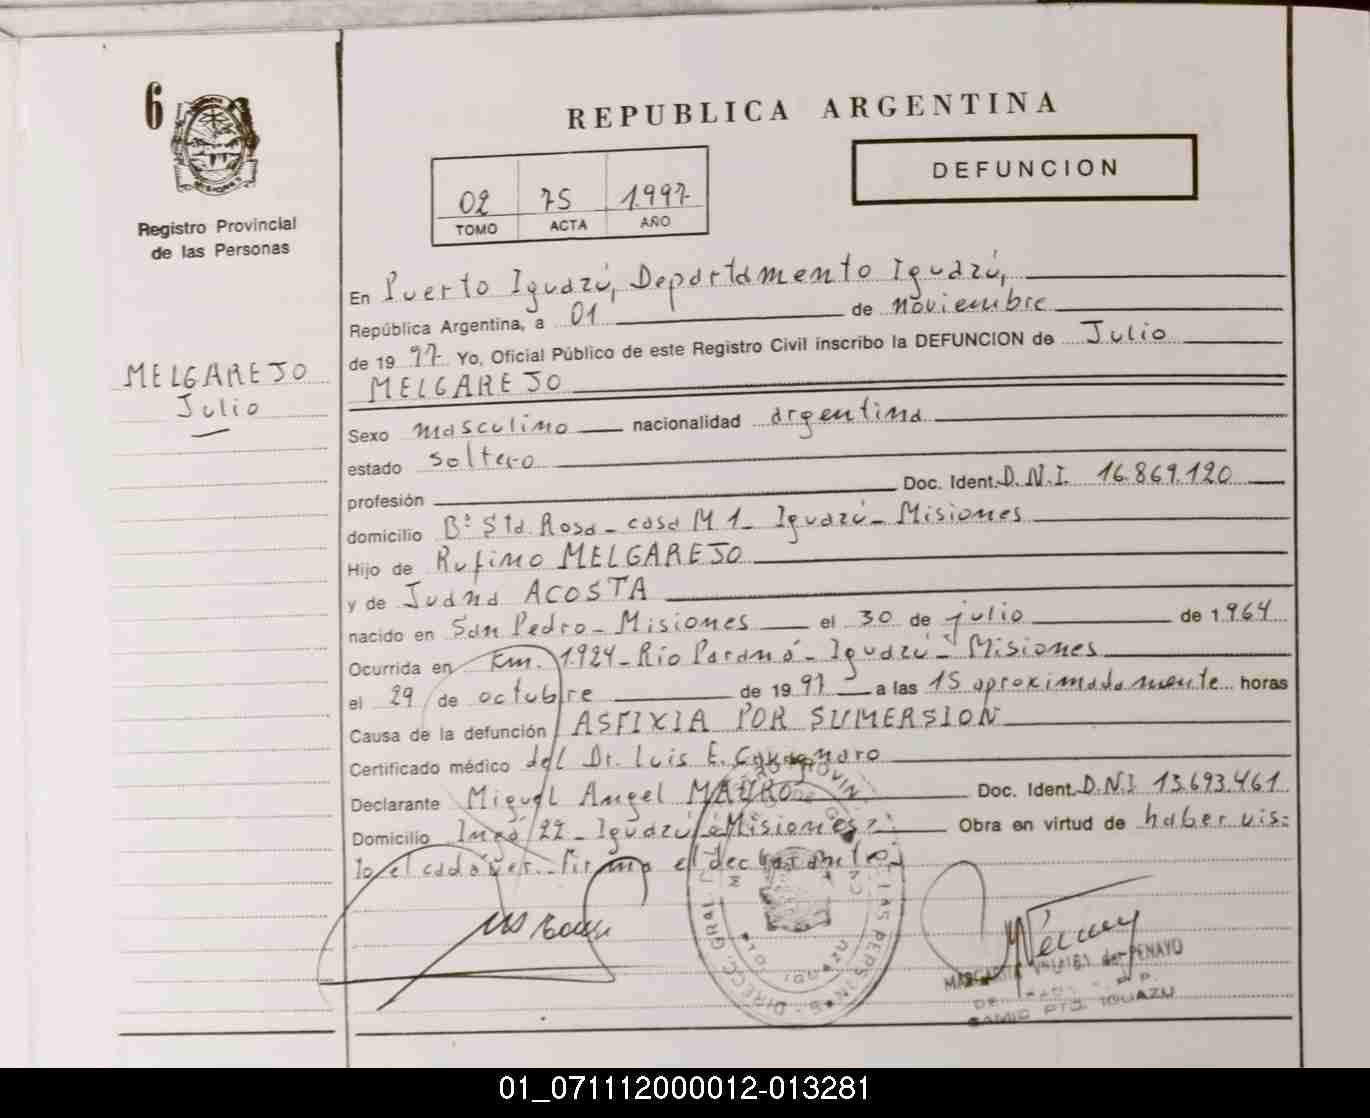 6
REPUBLICA ARGENTINA
DEFUNCION
02 75 1.997
TOMO ACTA AÑO
Registro Provincial
de las Personas
MELGAREJO
Julio
En Puerto Iguazú, Departamento Iguazú,
República Argentina, a 01 de noviembre
de 19 97 Yo, Oficial Público de este Registro Civil inscribo la DEFUNCION de Julio
MELGAREJO
Sexo masculino nacionalidad argentina
estado soltero
profesión Doc. Ident. D.N.I. 16.869.120
domicilio Bº Sta. Rosa - casa M 1 - Iguazú - Misiones
Hijo de Rufino MELGAREJO
y de Juana ACOSTA
nacido en San Pedro - Misiones el 30 de julio de 1.964
Ocurrida en Km. 1.924 - Río Paraná - Iguazú - Misiones
el 29 de octubre de 19 97 a las 15 aproximadamente horas
Causa de la defunción ASFIXIA POR SUMERSION
Certificado médico del Dr. Luis E.
Declarante Miguel Angel MAURO Doc. Ident. D.N.I 13.693.461
Domicilio Iguazú Misiones Obra en virtud de haber vis=
to el cadáver. Firma el declarante.
DIRECC. GRAL. LAS PERSONAS
MARGARITA de PENAYO
PTO. IGUAZU
01_071112000012-013281